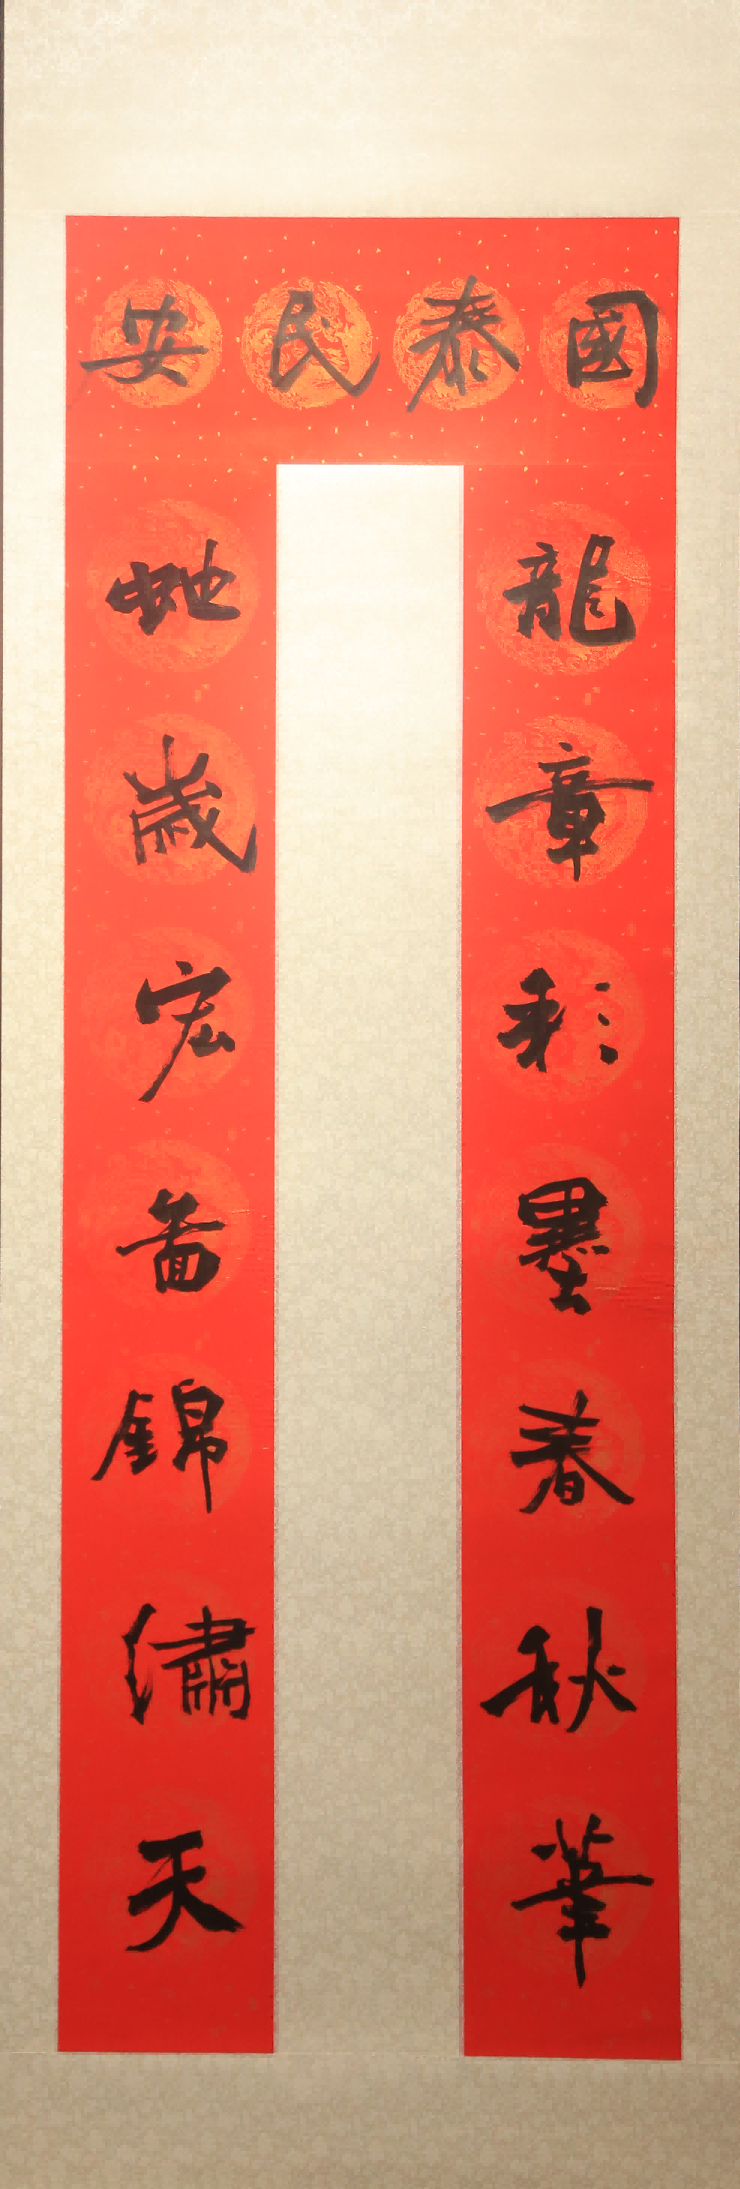 國泰民安
龍章彩墨春秋筆
虵歲宏圖錦繡天